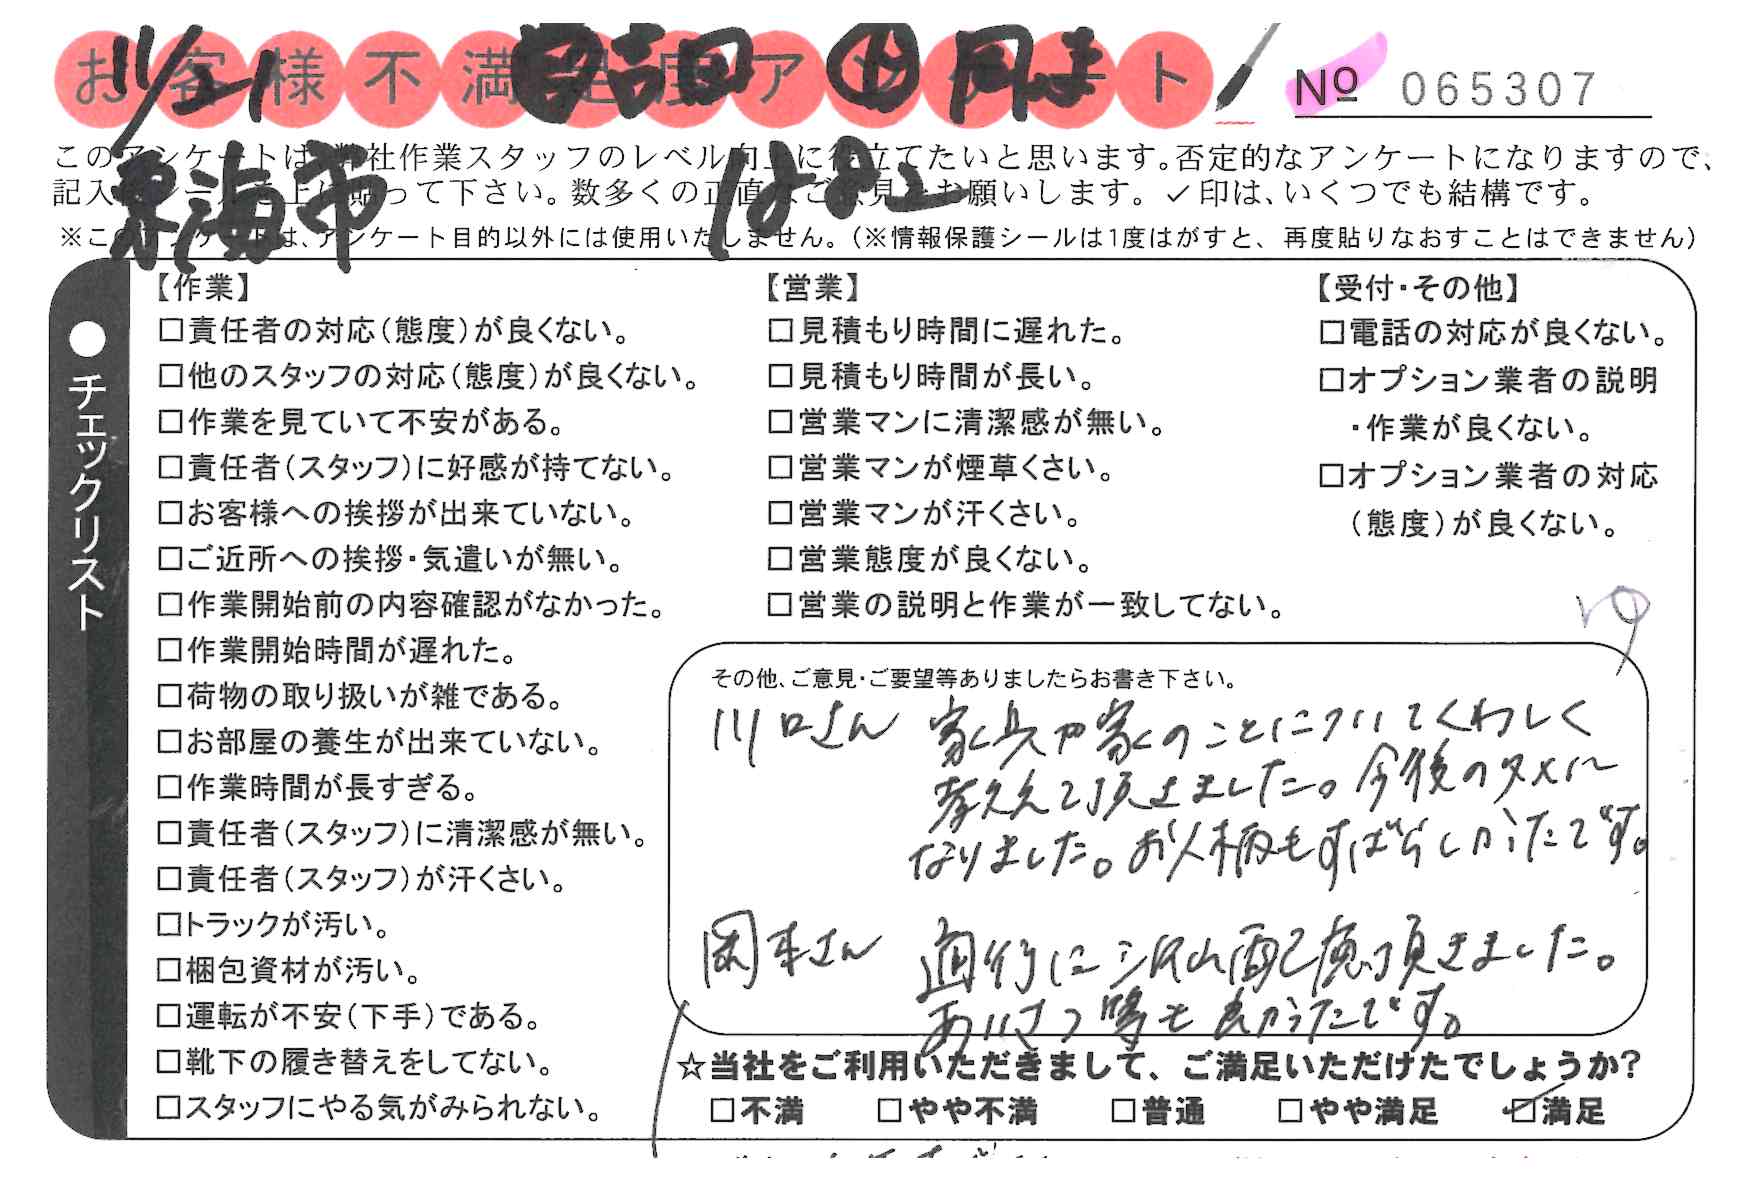 お客様不満足度アンケート
11/21 吉田 岡本
№ 065307
東海市
このアンケートは、弊社作業スタッフのレベル向上に役立てたいと思います。否定的なアンケートになりますので、
記入後シールを上に貼って下さい。数多くの正直なご意見をお願いします。✓印は、いくつでも結構です。
※このアンケートは、アンケート目的以外には使用いたしません。（※情報保護シールは1度はがすと、再度貼りなおすことはできません）
●チェックリスト
【作業】
□責任者の対応（態度）が良くない。
□他のスタッフの対応（態度）が良くない。
□作業を見ていて不安がある。
□責任者（スタッフ）に好感が持てない。
□お客様への挨拶が出来ていない。
□ご近所への挨拶・気遣いが無い。
□作業開始前の内容確認がなかった。
□作業開始時間が遅れた。
□荷物の取り扱いが雑である。
□お部屋の養生が出来ていない。
□作業時間が長すぎる。
□責任者（スタッフ）に清潔感が無い。
□責任者（スタッフ）が汗くさい。
□トラックが汚い。
□梱包資材が汚い。
□運転が不安（下手）である。
□靴下の履き替えをしてない。
□スタッフにやる気がみられない。
【営業】
□見積もり時間に遅れた。
□見積もり時間が長い。
□営業マンに清潔感が無い。
□営業マンが煙草くさい。
□営業マンが汗くさい。
□営業態度が良くない。
□営業の説明と作業が一致してない。
【受付・その他】
□電話の対応が良くない。
□オプション業者の説明
・作業が良くない。
□オプション業者の対応
（態度）が良くない。
その他、ご意見・ご要望等ありましたらお書き下さい。
川口さん 家具や家のことについてくわしく
教えて頂きました。今後のタメに
なりました。お人柄もすばらしかったです。
岡本さん 通行に沢山配慮頂きました。
あいさつ等も良かったです。
☆当社をご利用いただきまして、ご満足いただけたでしょうか?
□不満 □やや不満 □普通 □やや満足 ☑満足